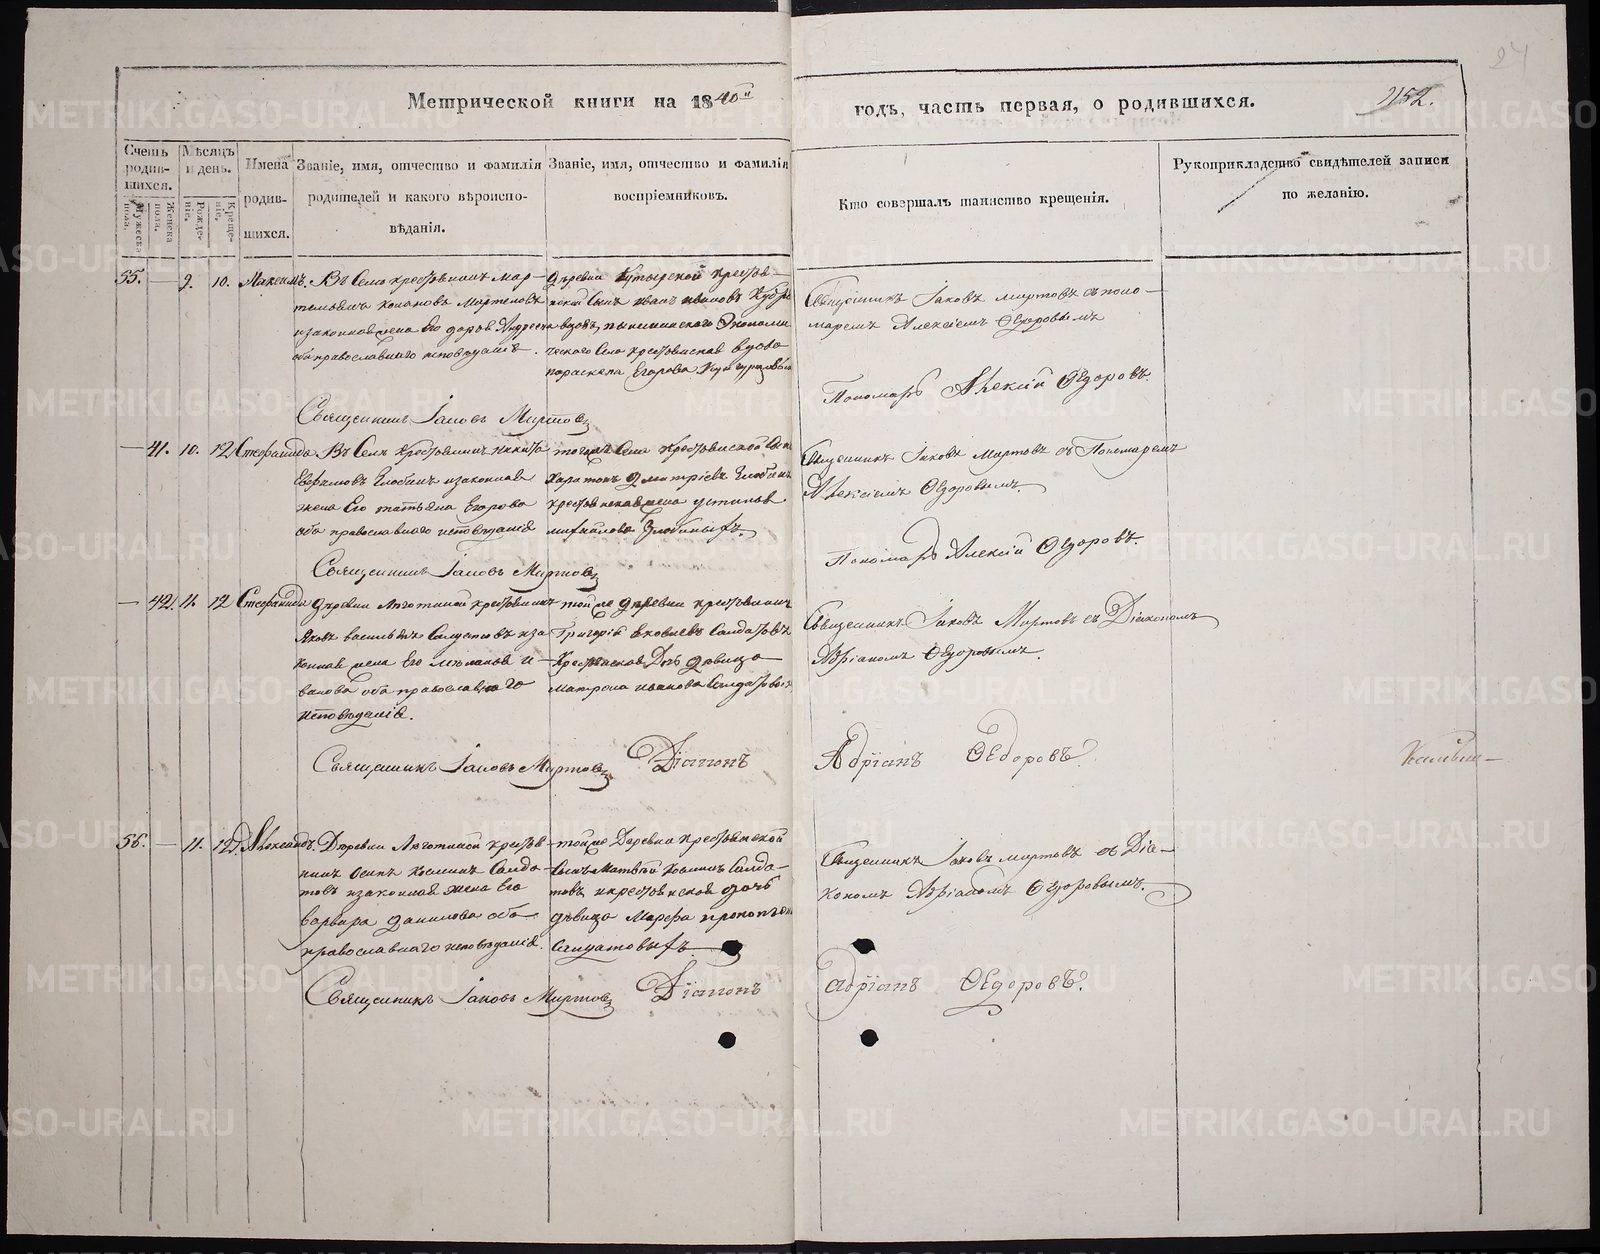 Метрической книги на 1840й годъ, часть первая, о родившихся.
152.
Счетъ родив-шихся.
Мужеска пола.
Женска пола.
Мѣсяцъ и день.
Рожде-ніе.
Креще-ніе.
Имена родив-шихся.
Званіе, имя, отчество и фамилія
родителей и какого вѣроиспо-
вѣданія.
Званіе, имя, отчество и фамилія
воспріемниковъ.
Кто совершалъ таинство крещенія.
Рукоприкладство свидѣтелей записи
по желанію.
55. — 9. 10. Максимъ.
Въ Селѣ крестьянинъ Мар-
изаконная жена Его
оба православнаго исповѣданія.
Священникъ Іаковъ Миртовъ
деревни крестьян-
ской сынъ Иванъ Ивановъ
ческаго Села крестьянская вдова
Егорова
Священникъ Іаковъ Миртовъ съ поно-
маремъ Алексіемъ Ѳедоровымъ
Пономарь Алексій Ѳедоровъ.
— 41. 10. 12. Стефанида
Въ Селѣ Крестьянинъ Никита
Евфимовъ Злобинъ изаконная
жена Его Татьяна Егорова
оба православнаго исповѣданія
Священникъ Іаковъ Миртовъ
тогоже Села Крестьянской
Харитонъ Дмитріевъ Злобинъ
крестьянская жена Устинья
михайлова Злобиныхъ.
Священникъ Іаковъ Миртовъ съ Пономаремъ
Алексіемъ Ѳедоровымъ.
Пономарь Алексій Ѳедоровъ.
— 42. 11. 12 Стефанида
деревни крестьянинъ
Яковъ васильевъ Салдатовъ иза
конная жена Его и-
ванова оба православнаго
исповѣданія.
Священникъ Іаковъ Миртовъ
тойже деревни крестьянинъ
Григорій Яковлевъ Салдатовъ
Крестьянская Дочь девица
матрона иванова Салдатовы
Священникъ Іаковъ Миртовъ съ Діакономъ
Адріаномъ Ѳедоровымъ.
Діаконъ Адріанъ Ѳедоровъ.
56. — 11. 12. Александръ.
Деревни крестья-
нинъ Осипъ Козминъ Салда-
товъ изаконная жена Его
варвара данилова оба
православнаго исповѣданія.
Священникъ Іаковъ Миртовъ
тойже Деревни крестьянской
Сынъ Матвѣй Козминъ Салда-
товъ икрестьянская дочь
дѣвица Марфа
Салдатовыхъ.
Священникъ Іаковъ миртовъ съ Діа-
кономъ Адріаномъ Ѳедоровымъ.
Діаконъ Адріанъ Ѳедоровъ.
METRIKI.GASO-URAL.RU